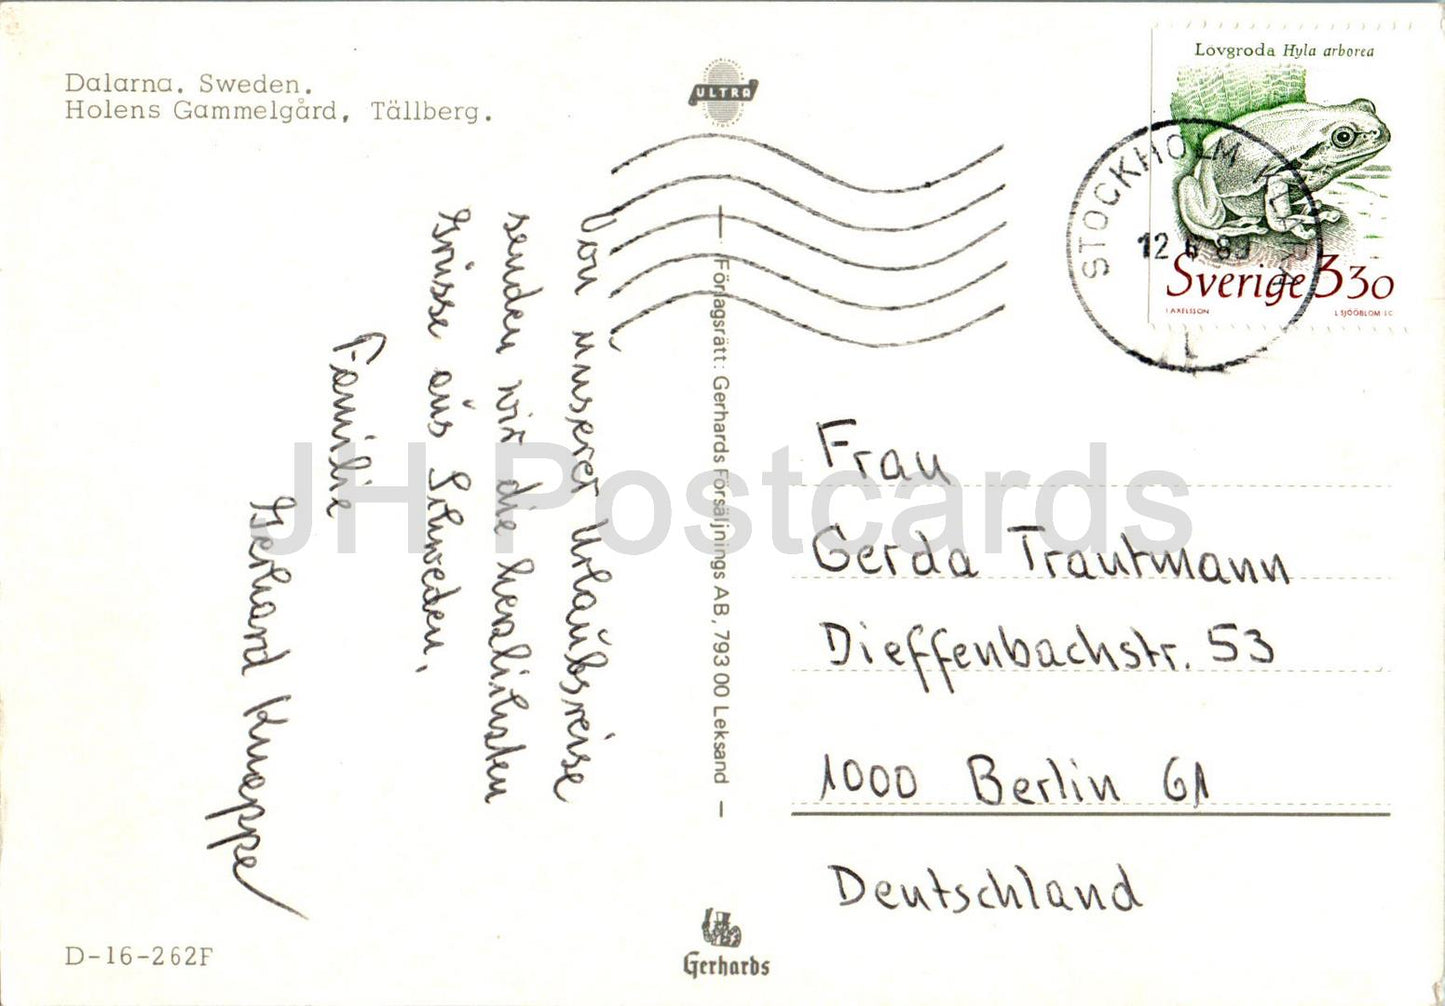 Dalarna. Sweden.
Holens Gammelgård, Tällberg.
ULTRA
Lövgroda Hyla arborea
STOCKHOLM
12 6 89
Sverige 3 30
I AXELSSON
L SJÖÖBLOM SC
Von unserer Urlaubsreise
senden wir die herzlichsten
Grüsse aus Schweden,
Familie
Gerhard Knappe
Förlagsrätt: Gerhards Försäljnings AB, 793 00 Leksand
Frau
Gerda Trautmann
Dieffenbachstr. 53
1000 Berlin 61
Deutschland
D-16-262F
Gerhards
JH Postcards